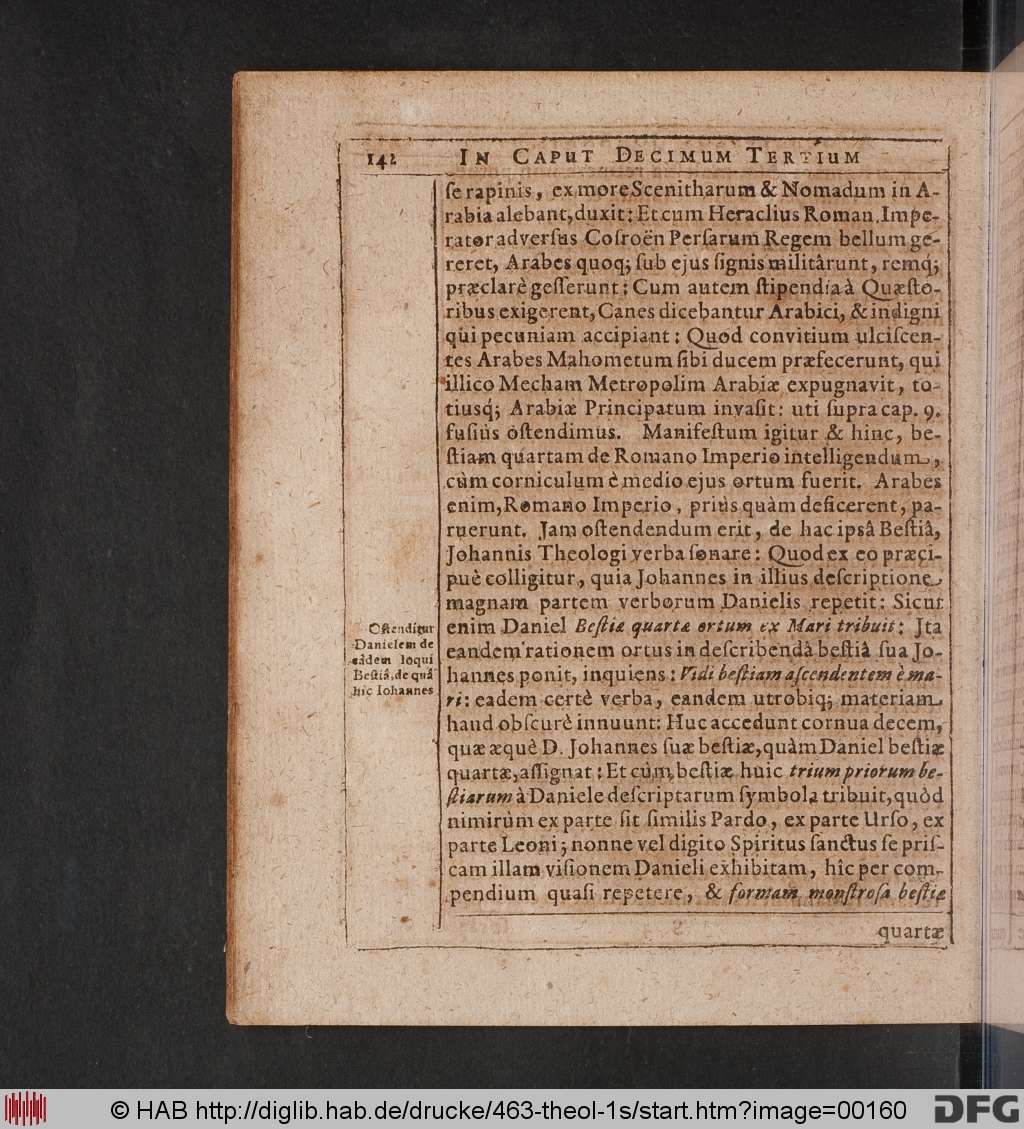 142 IN CAPUT DECIMUM TERTIUM
ſe rapinis, ex more Scenitharum & Nomadum in A-
rabia alebant, duxit: Et cum Heraclius Roman. Impe-
rator adverſus Coſroën Perſarum Regem bellum ge-
reret, Arabes quoq; ſub ejus ſignis militârunt, remq́;
præclarè geſſerunt: Cum autem ſtipendia à Quæſto-
ribus exigerent, Canes dicebantur Arabici, & indigni
qui pecuniam accipiant: Quod convitium ulciſcen-
tes Arabes Mahometum ſibi ducem præfecerunt, qui
illico Mecham Metropolim Arabiæ expugnavit, to-
tiusq́; Arabiæ Principatum invaſit: uti ſupra cap. 9.
fuſius oſtendimus. Manifeſtum igitur & hinc, be-
ſtiam quartam de Romano Imperio intelligendum,
cùm corniculum è medio ejus ortum fuerit. Arabes
enim, Romano Imperio, priùs quàm deficerent, pa-
ruerunt. Jam oſtendendum erit, de hac ipsâ Beſtiâ,
Johannis Theologi verba ſonare: Quod ex eo præci-
puè colligitur, quia Johannes in illius deſcriptione
magnam partem verborum Danielis repetit: Sicut
enim Daniel Beſtiæ quartæ ortum ex Mari tribuit: Jta
eandem rationem ortus in deſcribendâ beſtiâ ſua Jo-
hannes ponit, inquiens: Vidi beſtiam aſcendentem è ma-
ri: eadem certè verba, eandem utrobiq; materiam
haud obſcurè innuunt: Huc accedunt cornua decem,
quæ æquè D. Johannes ſuæ beſtiæ, quàm Daniel beſtiæ
quartæ, aſſignat: Et cùm beſtiæ huic trium priorum be-
ſtiarum à Daniele deſcriptarum ſymbola tribuit, quòd
nimirùm ex parte ſit ſimilis Pardo, ex parte Urſo, ex
parte Leoni; nonne vel digito Spiritus ſanctus ſe priſ-
cam illam viſionem Danieli exhibitam, hîc per com-
pendium quaſi repetere, & formam monſtroſa beſtiæ
quartæ
Oſtenditur
Danielem de
eâdem loqui
Beſtiâ, de quâ
hic Iohannes
© HAB http://diglib.hab.de/drucke/463-theol-1s/start.htm?image=00160
DFG